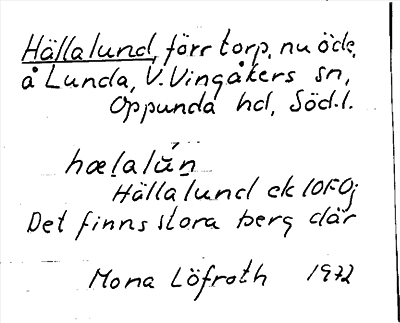 Hällalund, förr torp, nu öde,
å Lunda, V. Vingåkers sn,
Oppunda hd, Söd.l.
hælalún
Hällalund ek 10F0j
Det finns stora berg där
Mona Löfroth 1972